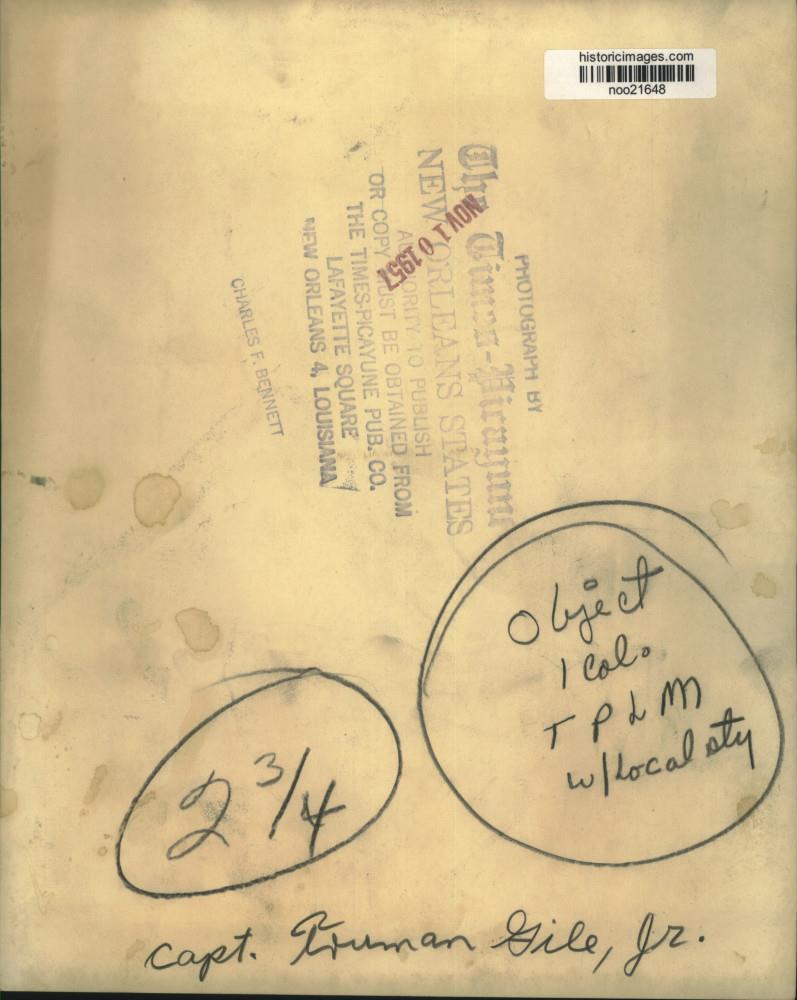 historicimages.com
noo21648
PHOTOGRAPH BY
The Times-Picayune
NEW ORLEANS STATES
NOV 10 1957
AUTHORITY TO PUBLISH
OR COPY MUST BE OBTAINED FROM
THE TIMES-PICAYUNE PUB. CO.
LAFAYETTE SQUARE
NEW ORLEANS 4, LOUISIANA
CHARLES F. BENNETT
Object
1 Col.
T P L M
w/Local sty
2 3/4
Capt. Truman Gile, Jr.